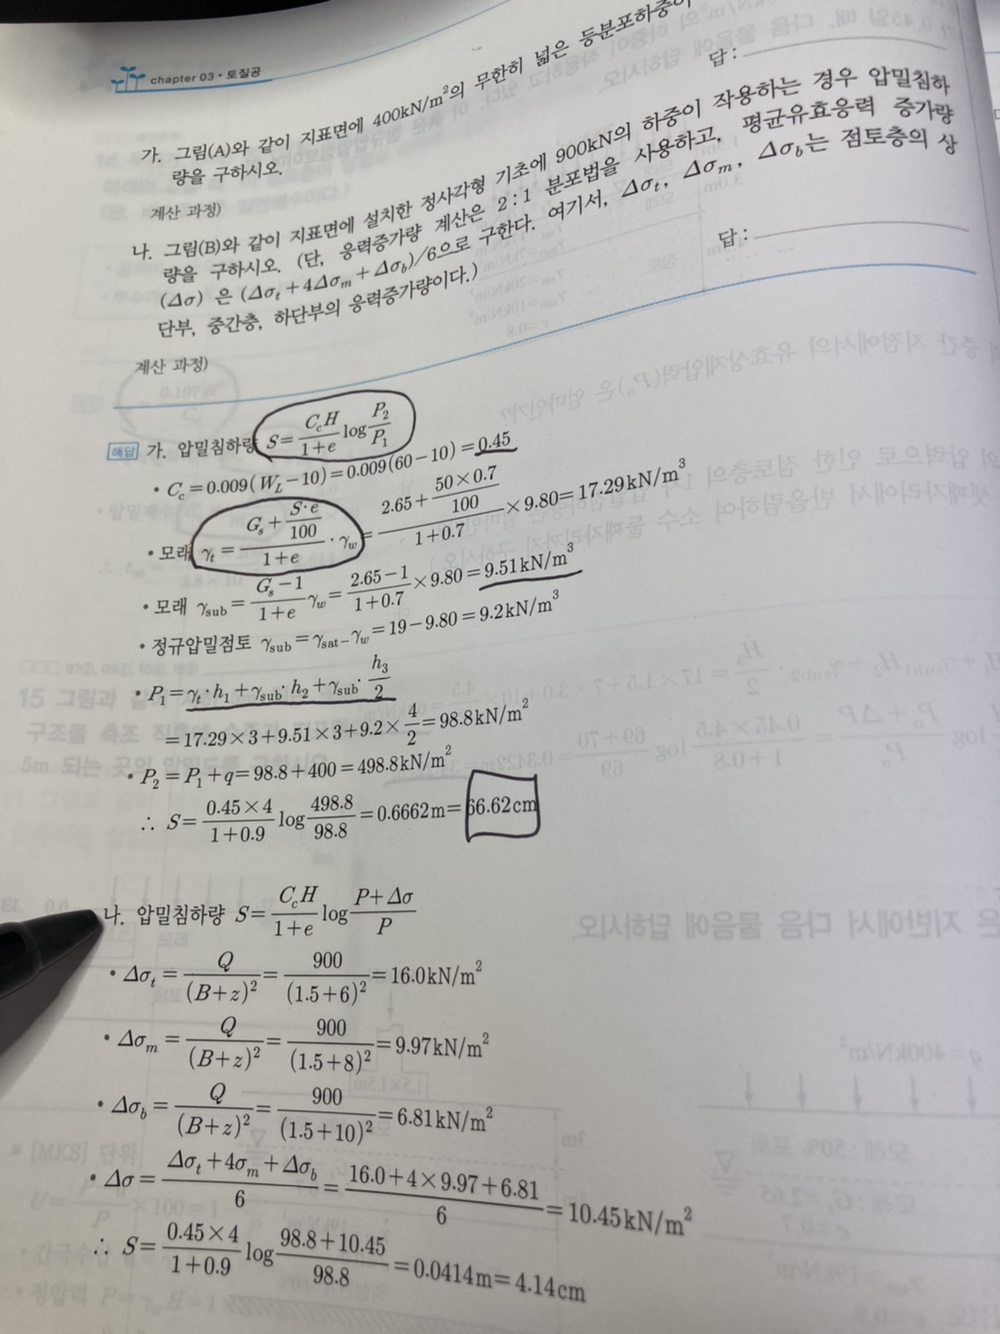 chapter 03 · 토질공
가. 그림(A)와 같이 지표면에 400kN/m²의 무한히 넓은 등분포하중이
량을 구하시오.
계산 과정)
답 :
나. 그림(B)와 같이 지표면에 설치한 정사각형 기초에 900kN의 하중이 작용하는 경우 압밀침하
량을 구하시오. (단, 응력증가량 계산은 2 : 1 분포법을 사용하고, 평균유효응력 증가량
(Δσ) 은 (Δσt + 4Δσm + Δσb)/6으로 구한다. 여기서, Δσt, Δσm, Δσb는 점토층의 상
단부, 중간층, 하단부의 응력증가량이다.)
계산 과정)
답 :
해답 가. 압밀침하량 S = CcH/(1+e) log P2/P1
• Cc = 0.009(WL − 10) = 0.009(60 − 10) = 0.45
• 모래 γt = (Gs + S·e/100)/(1+e) · γw = (2.65 + 50×0.7/100)/(1+0.7) × 9.80 = 17.29kN/m³
• 모래 γsub = (Gs − 1)/(1+e) γw = (2.65 − 1)/(1+0.7) × 9.80 = 9.51kN/m³
• 정규압밀점토 γsub = γsat − γw = 19 − 9.80 = 9.2kN/m³
• P1 = γt · h1 + γsub · h2 + γsub · h3/2
= 17.29×3 + 9.51×3 + 9.2× 4/2 = 98.8kN/m²
• P2 = P1 + q = 98.8 + 400 = 498.8kN/m²
∴ S = (0.45×4)/(1+0.9) log 498.8/98.8 = 0.6662m = 66.62cm
나. 압밀침하량 S = CcH/(1+e) log (P+Δσ)/P
• Δσt = Q/(B+z)² = 900/(1.5+6)² = 16.0kN/m²
• Δσm = Q/(B+z)² = 900/(1.5+8)² = 9.97kN/m²
• Δσb = Q/(B+z)² = 900/(1.5+10)² = 6.81kN/m²
• Δσ = (Δσt + 4σm + Δσb)/6 = (16.0 + 4×9.97 + 6.81)/6 = 10.45kN/m²
∴ S = (0.45×4)/(1+0.9) log (98.8+10.45)/98.8 = 0.0414m = 4.14cm